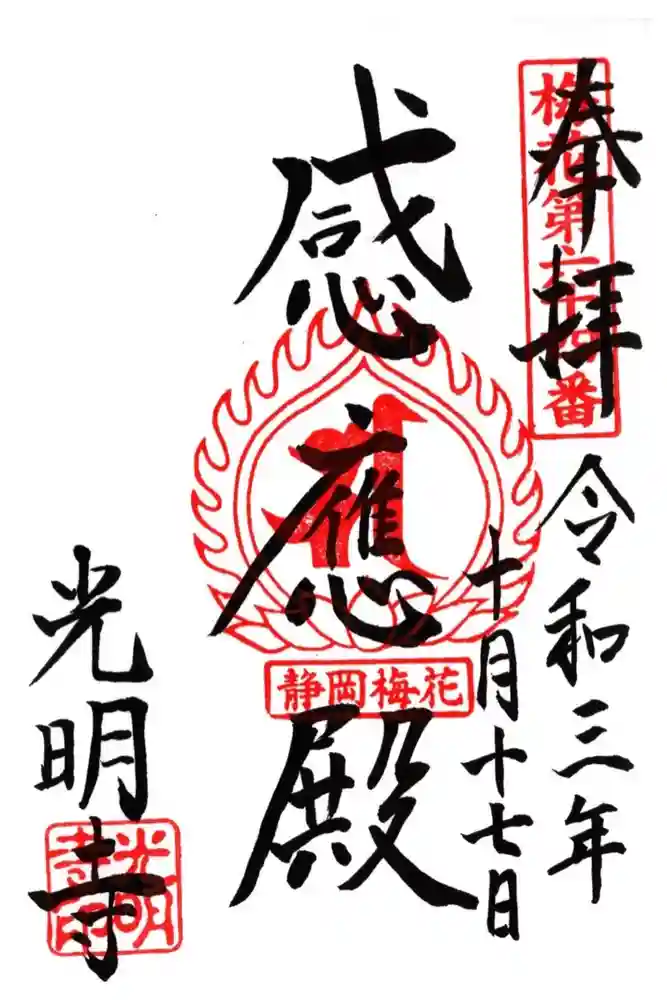 奉拝
梅花第六十四番
令和三年
十月十七日
感應殿
静岡梅花
光明寺
光明
寺印